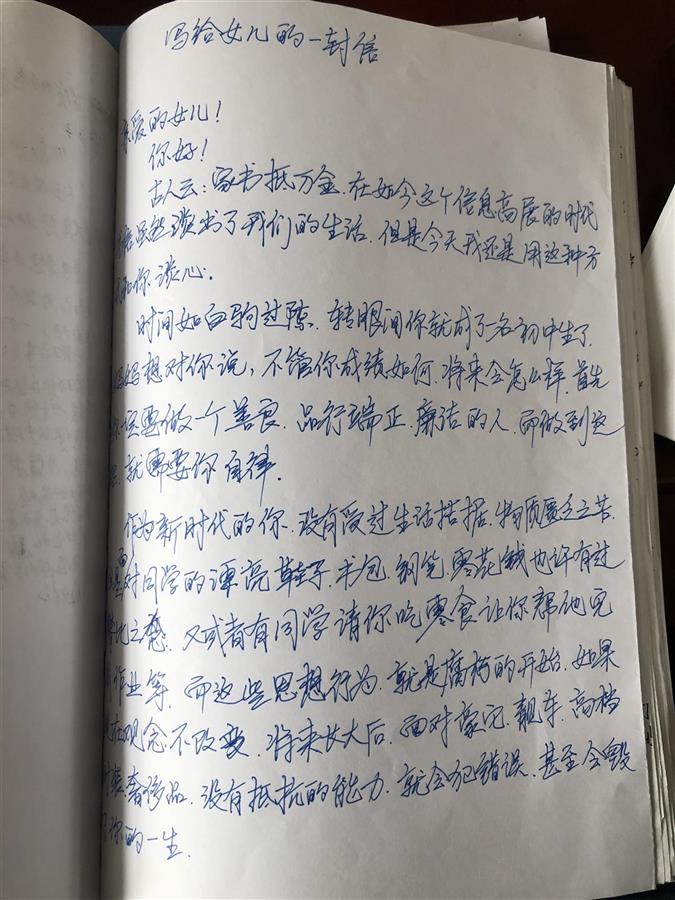 写给女儿的一封信
亲爱的女儿！
你好！
古人云：家书抵万金，在如今这个信息高度的时代
虽然溢出了我们的生活，但是今天我还是用这种方
和你谈心。
时间如白驹过隙，转眼间你就成了一名初中生了，
妈妈想对你说，不管你成绩如何，将来会怎么样，首先
你须要做一个善良、品行端正、廉洁的人，而做到这
些，就需要你自律。
作为新时代的你，没有受过生活拮据、物质匮乏之苦，
面对同学的漂亮鞋子、书包、钢笔、零花钱也许有过
攀比之想，又或者有同学请你吃零食让你帮他完
作业等，而这些思想行为，就是腐朽的开始，如果
现在观念不改变，将来长大后，面对豪宅、靓车、高档
奢侈品，没有抵抗的能力，就会犯错误，甚至会毁
了你的一生。